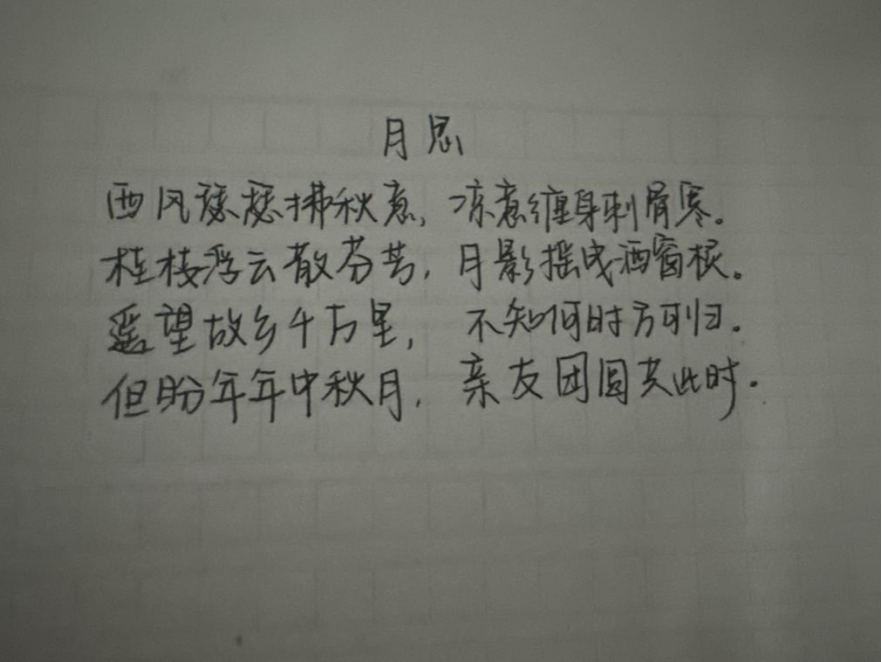 月思
西风瑟瑟拂秋意，凉意缠身刺骨寒。
桂枝浮云散芬芳，月影摇曳洒窗棂。
遥望故乡千万里，不知何时方可归。
但盼年年中秋月，亲友团圆共此时。